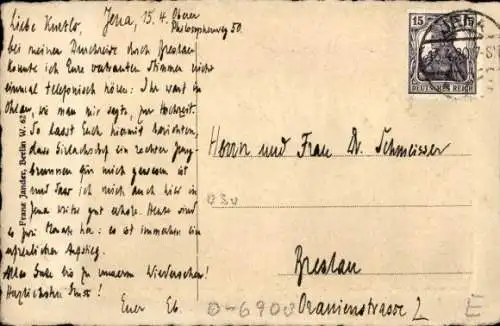 Jena, 15. 4. Oberer
Philosophenweg 50.
bei meiner Durchreise durch Breslau
konnte ich Eure vertrauten Stimmen nicht
einmal telefonisch hören: Ihr wart in
Ohlau, wie man mir sagte, zur Hochzeit.
So lasst Euch hiermit berichten,
dass ein rechter Jung-
brunnen für mich gewesen ist
und dass ich mich auch hier in
Jena weiter gut erhole. Heute sind
es zwei Monate her: es ist immerhin ein
erfreulicher Aufstieg.
Alles Gute bis zu unserem Wiedersehen!
Herzlichsten Gruss!
Euer Eb.
Herrn und Frau Dr. Schmeisser
Breslau
Oranienstrasse 2
Franz Jander, Berlin W. 62
15
DEUTSCHES REICH
JENA
D-6900
E